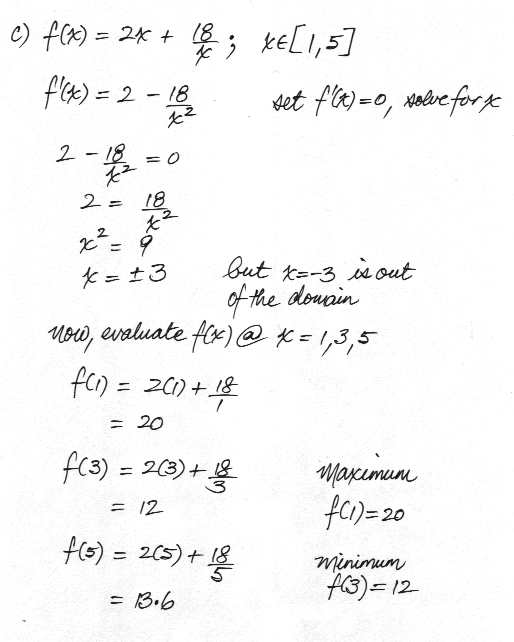 c) f(x) = 2x + 18/x ; x∈[1,5]
f'(x) = 2 - 18/x²
set f'(x)=0, solve for x
2 - 18/x² = 0
2 = 18/x²
x² = 9
x = ±3
but x=-3 is out
of the domain
now, evaluate f(x) @ x = 1,3,5
f(1) = 2(1) + 18/1
= 20
f(3) = 2(3) + 18/3
= 12
f(5) = 2(5) + 18/5
= 13.6
Maximum
f(1)=20
minimum
f(3)=12